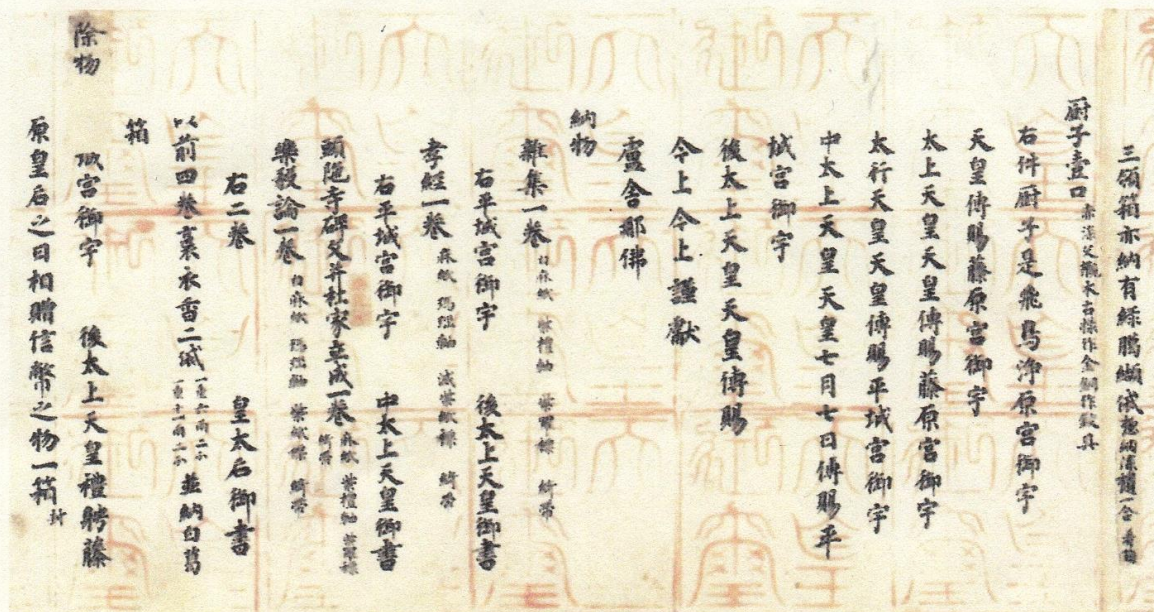 三領箱亦納有緑﨟纈袋惣納漆櫃一合
厨子壹口 赤漆文欟木古様作金銅作鉸具
右件厨子是飛鳥浄原宮御宇
天皇傳賜藤原宮御宇
太上天皇天皇傳賜藤原宮御宇
太行天皇天皇傳賜平城宮御宇
中太上天皇天皇七月七日傳賜平
城宮御宇
後太上天皇天皇傳賜
今上今上謹獻
盧舍那佛
納物
雜集一卷 白麻紙 紫檀軸 紫羅褾 綺帶
右平城宮御宇 後太上天皇御書
孝經一卷 麻紙 瑪瑙軸 滅紫紙褾 綺帶
右平城宮御宇 中太上天皇御書
頭陁寺碑文并杜家立成一卷 麻紙 紫檀軸 紫羅褾 綺帶
樂毅論一卷 白麻紙 瑪瑙軸 紫紙褾 綺帶
右二卷 皇太后御書
以前四卷裹衣香二袋 一重六兩二分 一重十一兩一分 並納白葛
箱
除物 城宮御宇 後太上天皇禮聘藤
原皇后之日相贈信幣之物一箱 封